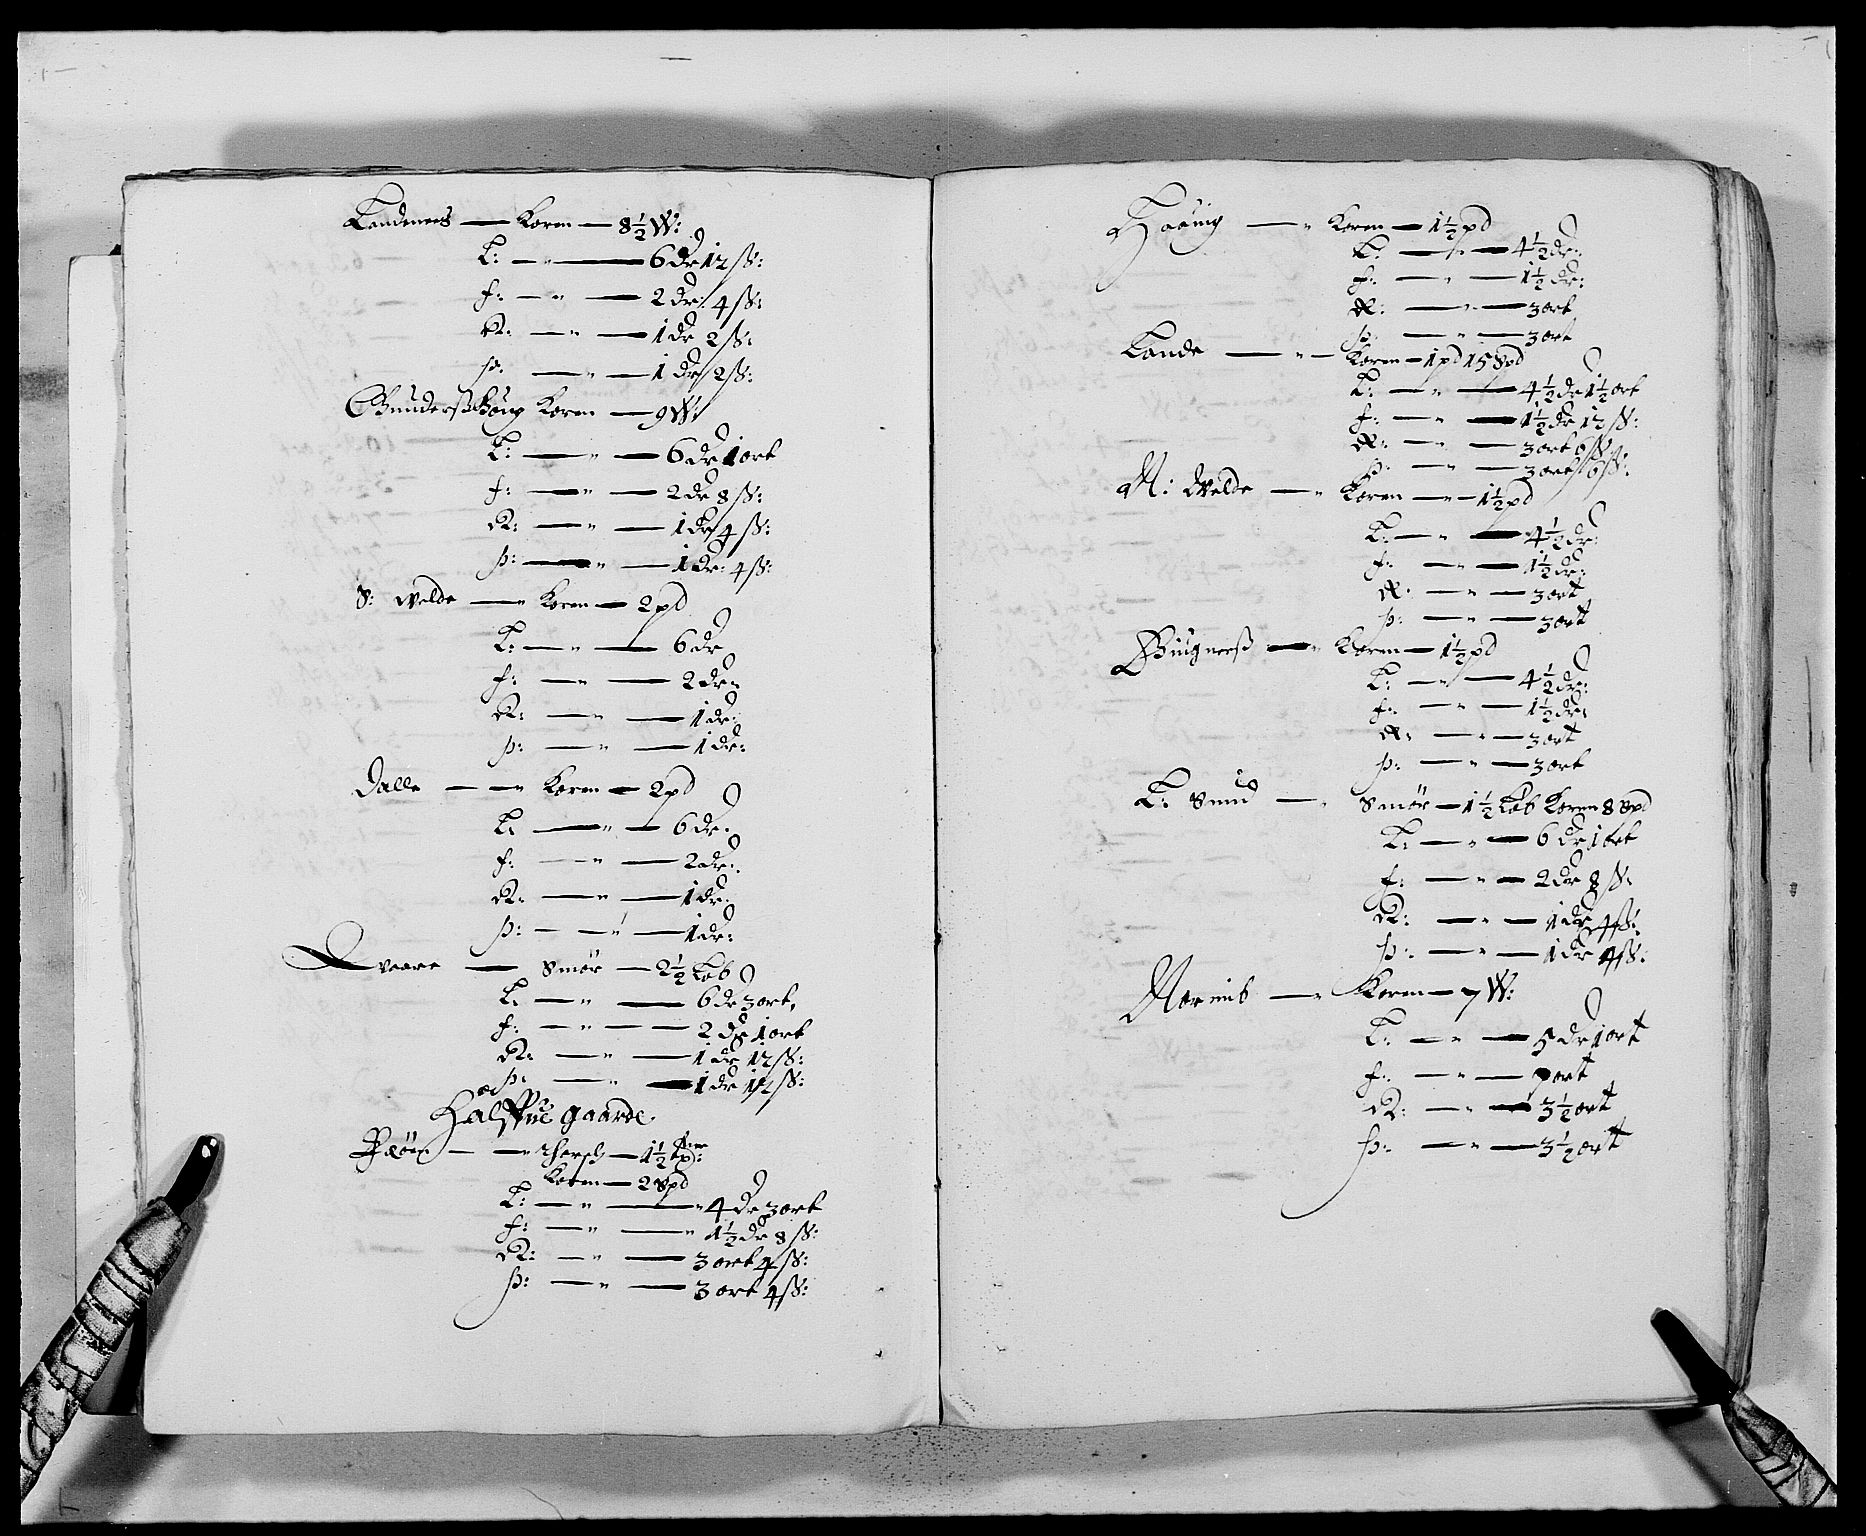 Landenes — Koren — 8½ W:
L: — 6 dr 12 ß:
f: — 2 dr: 4 ß:
R: — 1 dr 2 ß:
þ: — 1 dr 2 ß:
Koren — 9 W:
L: — 6 dr 1 ort
f: — 2 dr 8 ß:
R: — 1 dr 4 ß:
þ: — 1 dr: 4 ß:
S: Welde — Koren — 2 pd
L: — 6 dr
f: — 2 dr:
R: — 1 dr:
þ: — 1 dr:
Dalle — Koren — 2 pd
L: — 6 dr:
f: — 2 dr:
R: — 1 dr:
þ: — 1 dr:
Smör — 2½ Løb
L: — 6 dr 3 ort,
f: — 2 dr 1 ort
R: — 1 dr 12 ß:
þ: — 1 dr 12 ß:
Halffue gaarde.
1½
Koren — 2 Spd
L: — 4 dr 3 ort
f: — 1½ dr 8 ß:
R: — 3 ort 4 ß:
þ: — 3 ort 4 ß:
Haaing — Koren — 1½ pd
L: — 4½ dr:
f: — 1½ dr:
R: — 3 ort
þ: — 3 ort
Lande — Koren — 1 pd 15 Spd
L: — 4½ dr 1½ ort
f: — 1½ dr 12 ß:
R: — 3 ort 6 ß
þ: — 3 ort 6 ß:
N: Welde — Koren — 1½ pd
L: — 4½ dr:
f: — 1½ dr:
R: — 3 ort
þ: — 3 ort
Koren — 1½ pd
L: — 4½ dr:
f: — 1½ dr:
R: — 3 ort
þ: — 3 ort
L: Sund — Smör — 1½ Løb Koren 8 Spd
L: — 6 dr 1 ort
f: — 2 dr 8 ß:
R: — 1 dr 4 ß:
þ: — 1 dr 4 ß:
Koren — 7 W:
L: — 5 dr 1 ort
f: — 7 ort
R: — 3½ ort
þ: — 3½ ort